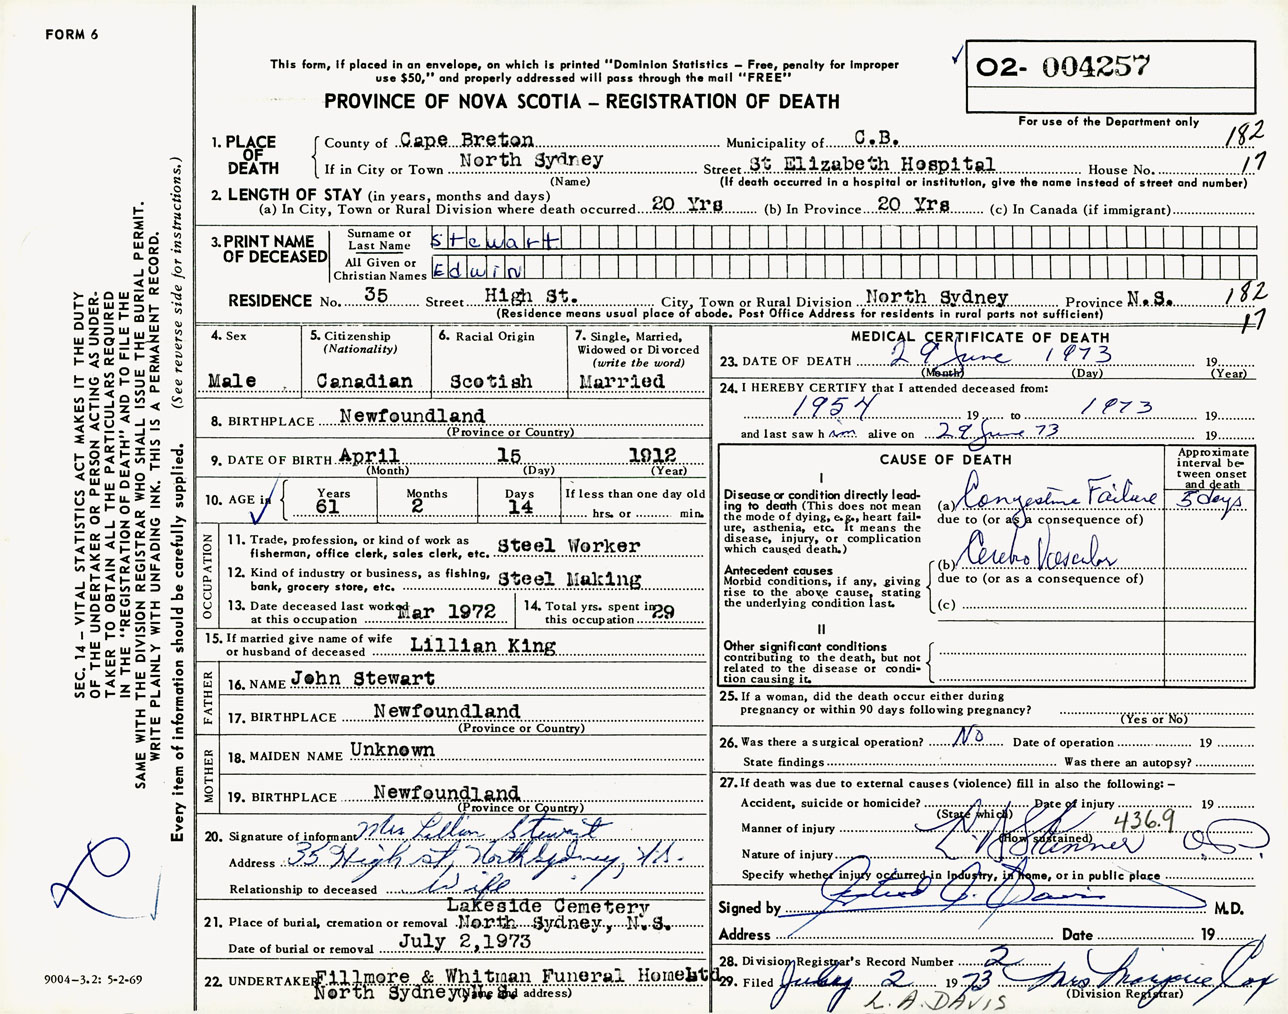 FORM 6
This form, if placed in an envelope, on which is printed "Dominion Statistics – Free, penalty for improper
use $50," and properly addressed will pass through the mail "FREE"
PROVINCE OF NOVA SCOTIA – REGISTRATION OF DEATH
02- 004257
For use of the Department only
1. PLACE OF DEATH
County of Cape Breton Municipality of C.B. 182
If in City or Town North Sydney Street St Elizabeth Hospital House No. 17
(Name) (If death occurred in a hospital or institution, give the name instead of street and number)
2. LENGTH OF STAY (in years, months and days)
(a) In City, Town or Rural Division where death occurred 20 Yrs (b) In Province 20 Yrs (c) In Canada (if immigrant)
3. PRINT NAME OF DECEASED
Surname or Last Name Stewart
All Given or Christian Names Edwin
RESIDENCE No. 35 Street High St. City, Town or Rural Division North Sydney Province N.S. 182
(Residence means usual place of abode. Post Office Address for residents in rural parts not sufficient) 17
4. Sex
Male
5. Citizenship
(Nationality)
Canadian
6. Racial Origin
Scotish
7. Single, Married,
Widowed or Divorced
(write the word)
Married
8. BIRTHPLACE Newfoundland
(Province or Country)
9. DATE OF BIRTH April 15 1912
(Month) (Day) (Year)
10. AGE in
Years 61
Months 2
Days 14
If less than one day old
hrs. or min.
OCCUPATION
11. Trade, profession, or kind of work as
fisherman, office clerk, sales clerk, etc. Steel Worker
12. Kind of industry or business, as fishing,
bank, grocery store, etc. Steel Making
13. Date deceased last worked
at this occupation Mar 1972
14. Total yrs. spent in
this occupation 29
15. If married give name of wife
or husband of deceased Lillian King
FATHER
16. NAME John Stewart
17. BIRTHPLACE Newfoundland
(Province or Country)
MOTHER
18. MAIDEN NAME Unknown
19. BIRTHPLACE Newfoundland
(Province or Country)
20. Signature of informant Mrs Lillian Stewart
Address 35 High st, North Sydney, N.S.
Relationship to deceased Wife
Lakeside Cemetery
21. Place of burial, cremation or removal North Sydney, N.S.
Date of burial or removal July 2,1973
22. UNDERTAKER Fillmore & Whitman Funeral Home Ltd
North Sydney N.S.
(Name and address)
MEDICAL CERTIFICATE OF DEATH
23. DATE OF DEATH 29 June 1973 19
(Month) (Day) (Year)
24. I HEREBY CERTIFY that I attended deceased from:
1954 19 to 1973 19
and last saw h im alive on 29 June 73 19
CAUSE OF DEATH
Approximate
interval be-
tween onset
and death
I
Disease or condition directly lead-
ing to death (This does not mean
the mode of dying, e.g., heart fail-
ure, asthenia, etc. It means the
disease, injury, or complication
which caused death.)
(a) Congestive Failure 5 days
due to (or as a consequence of)
Antecedent causes
Morbid conditions, if any, giving
rise to the above cause, stating
the underlying condition last.
(b) Cerebro Vascular
due to (or as a consequence of)
(c)
II
Other significant conditions
contributing to the death, but not
related to the disease or condi-
tion causing it.
25. If a woman, did the death occur either during
pregnancy or within 90 days following pregnancy?
(Yes or No)
26. Was there a surgical operation? No Date of operation 19
State findings Was there an autopsy?
27. If death was due to external causes (violence) fill in also the following: –
Accident, suicide or homicide? Date of injury 19
(State which)
Manner of injury 436.9
(How sustained)
Nature of injury Skinner
Specify whether injury occurred in Industry, in home, or in public place
Signed by Davis M.D.
Address Date 19
28. Division Registrar's Record Number 2
29. Filed July 2 1973 Mrs Marjorie Cox
(Division Registrar)
L.A. DAVIS
SEC. 14 – VITAL STATISTICS ACT MAKES IT THE DUTY
OF THE UNDERTAKER OR PERSON ACTING AS UNDER-
TAKER TO OBTAIN ALL THE PARTICULARS REQUIRED
IN THE "REGISTRATION OF DEATH" AND TO FILE THE
SAME WITH THE DIVISION REGISTRAR WHO SHALL ISSUE THE BURIAL PERMIT.
WRITE PLAINLY WITH UNFADING INK. THIS IS A PERMANENT RECORD.
Every item of information should be carefully supplied. (See reverse side for instructions.)
9004-3.2: 5-2-69